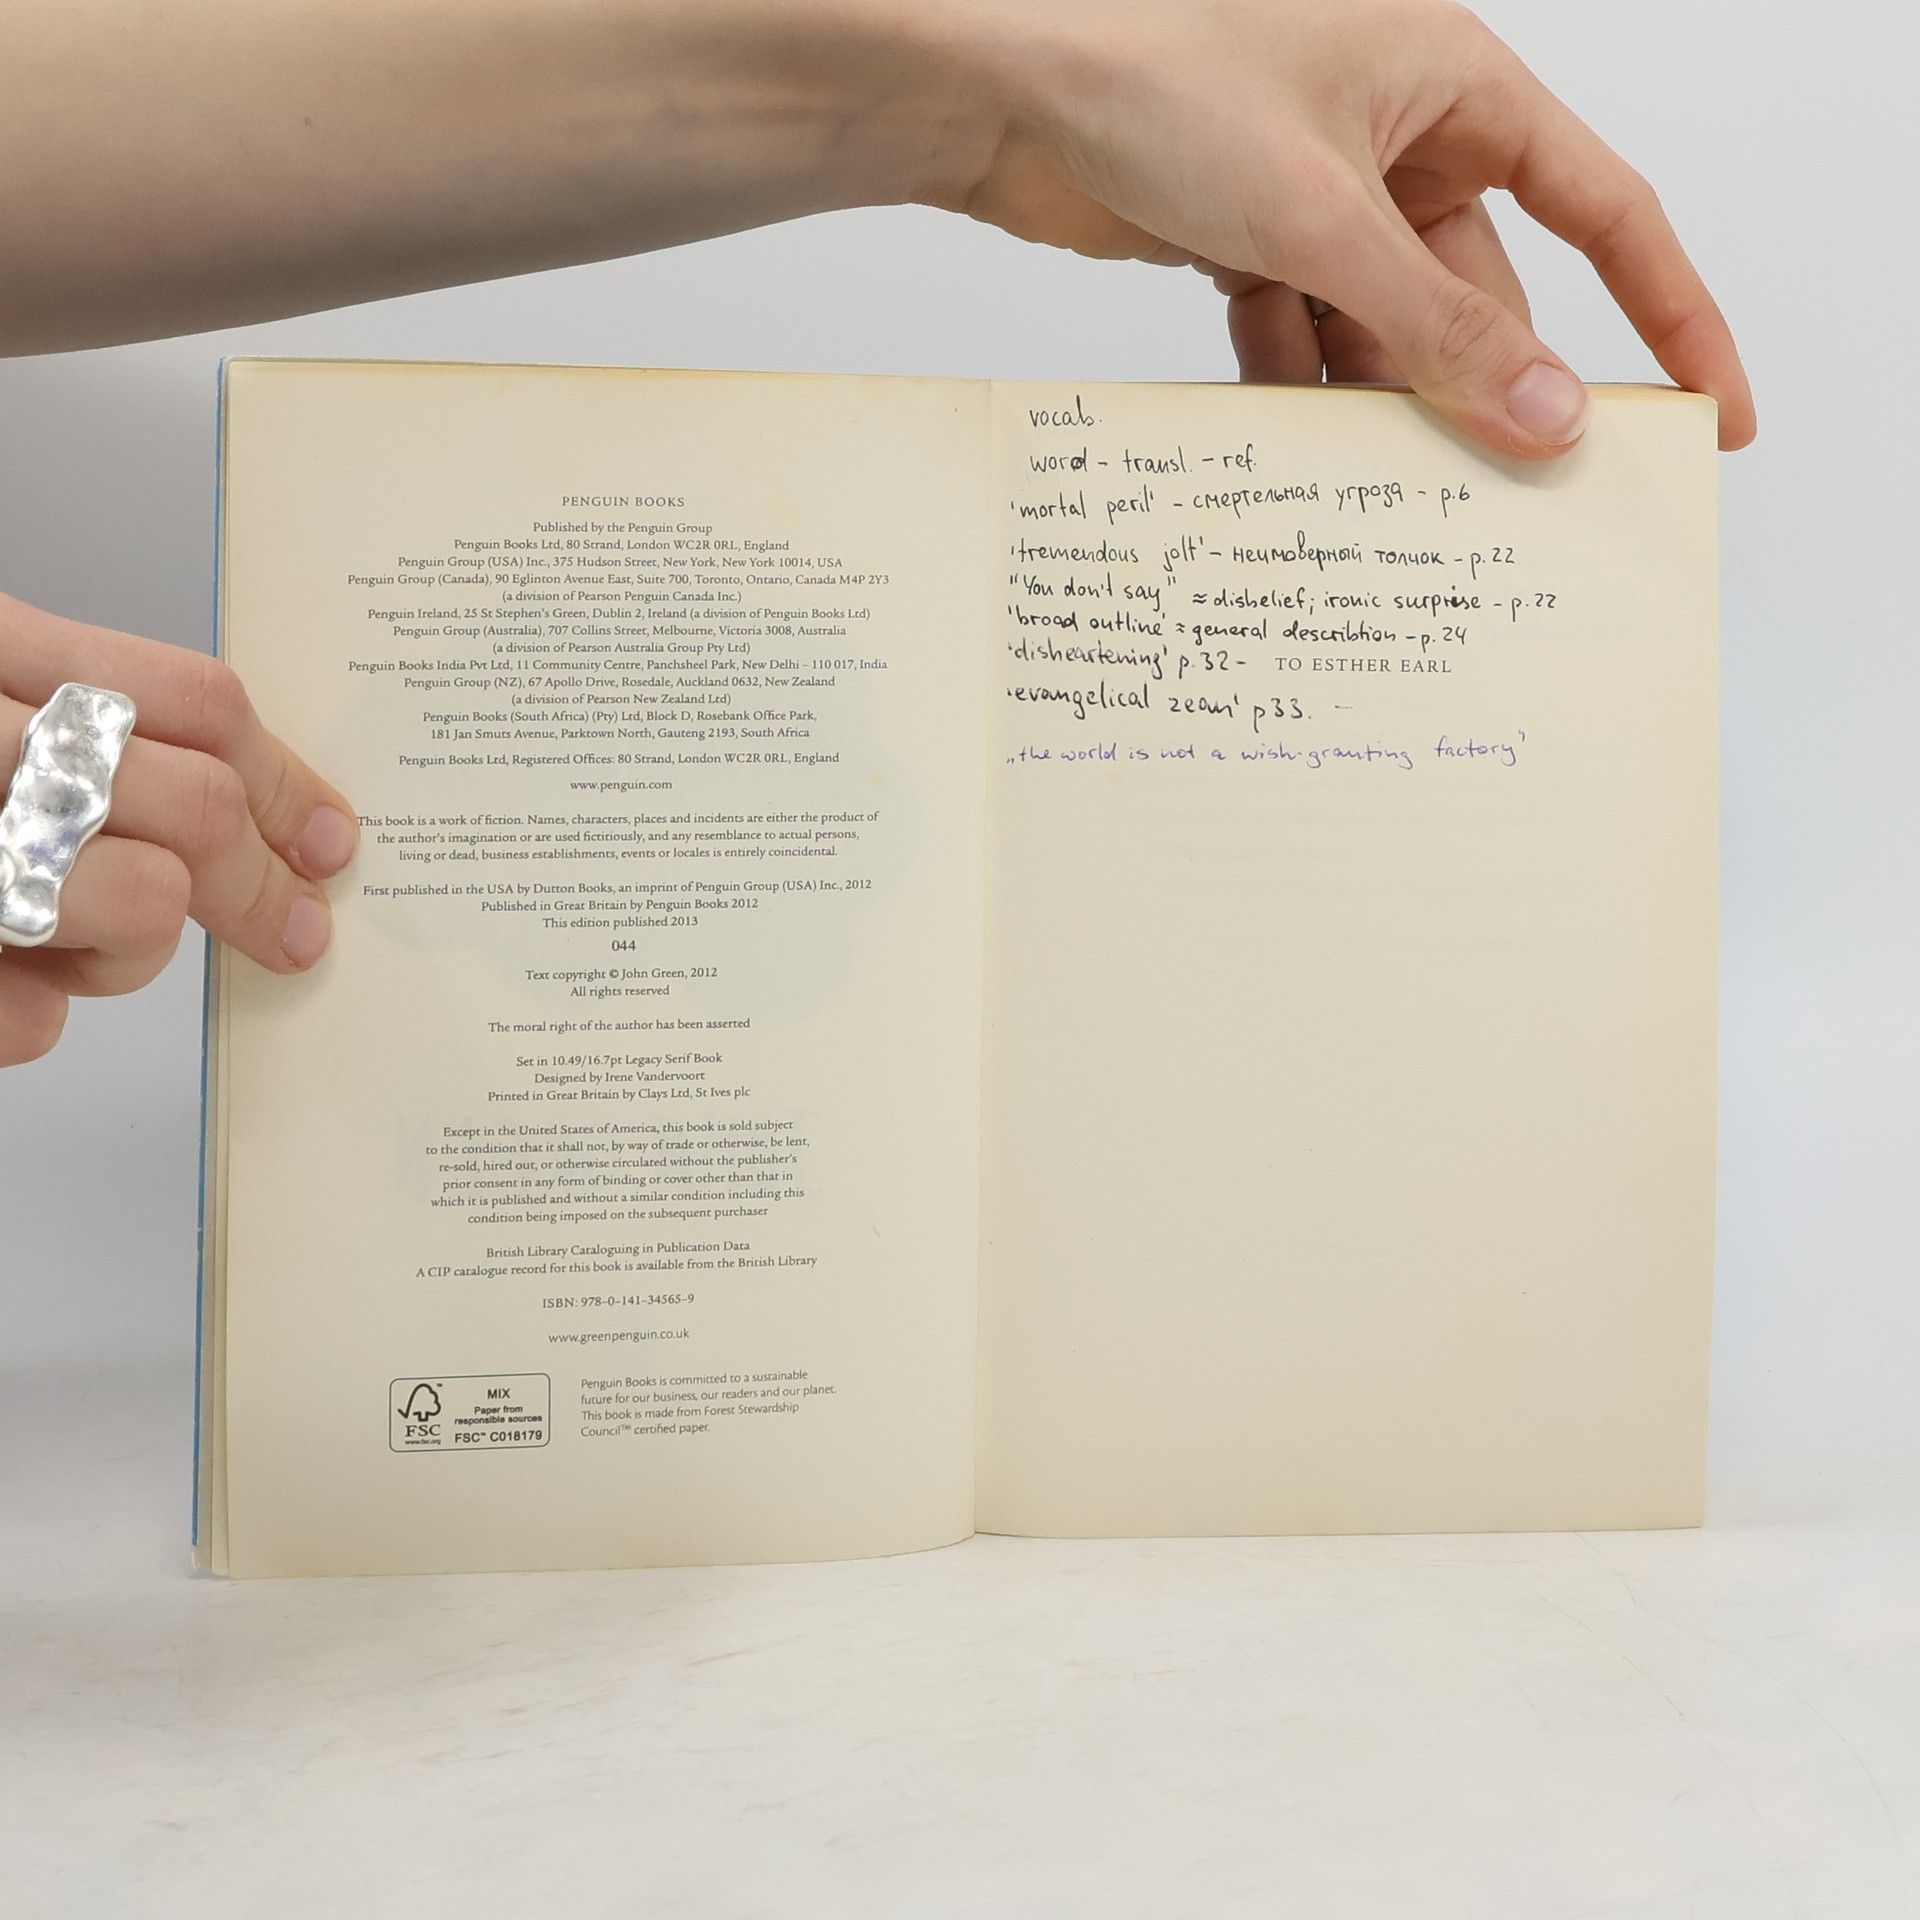 PENGUIN BOOKS
Published by the Penguin Group
Penguin Books Ltd, 80 Strand, London WC2R 0RL, England
Penguin Group (USA) Inc., 375 Hudson Street, New York, New York 10014, USA
Penguin Group (Canada), 90 Eglinton Avenue East, Suite 700, Toronto, Ontario, Canada M4P 2Y3
(a division of Pearson Penguin Canada Inc.)
Penguin Ireland, 25 St Stephen's Green, Dublin 2, Ireland (a division of Penguin Books Ltd)
Penguin Group (Australia), 707 Collins Street, Melbourne, Victoria 3008, Australia
(a division of Pearson Australia Group Pty Ltd)
Penguin Books India Pvt Ltd, 11 Community Centre, Panchsheel Park, New Delhi – 110 017, India
Penguin Group (NZ), 67 Apollo Drive, Rosedale, Auckland 0632, New Zealand
(a division of Pearson New Zealand Ltd)
Penguin Books (South Africa) (Pty) Ltd, Block D, Rosebank Office Park,
181 Jan Smuts Avenue, Parktown North, Gauteng 2193, South Africa
Penguin Books Ltd, Registered Offices: 80 Strand, London WC2R 0RL, England
www.penguin.com
This book is a work of fiction. Names, characters, places and incidents are either the product of
the author's imagination or are used fictitiously, and any resemblance to actual persons,
living or dead, business establishments, events or locales is entirely coincidental.
First published in the USA by Dutton Books, an imprint of Penguin Group (USA) Inc., 2012
Published in Great Britain by Penguin Books 2012
This edition published 2013
044
Text copyright © John Green, 2012
All rights reserved
The moral right of the author has been asserted
Set in 10.49/16.7pt Legacy Serif Book
Designed by Irene Vandervoort
Printed in Great Britain by Clays Ltd, St Ives plc
Except in the United States of America, this book is sold subject
to the condition that it shall not, by way of trade or otherwise, be lent,
re-sold, hired out, or otherwise circulated without the publisher's
prior consent in any form of binding or cover other than that in
which it is published and without a similar condition including this
condition being imposed on the subsequent purchaser
British Library Cataloguing in Publication Data
A CIP catalogue record for this book is available from the British Library
ISBN: 978-0-141-34565-9
www.greenpenguin.co.uk
MIX
Paper from
responsible sources
FSC™ C018179
FSC
www.fsc.org
Penguin Books is committed to a sustainable
future for our business, our readers and our planet.
This book is made from Forest Stewardship
Council™ certified paper.
vocab.
word - transl. - ref.
'mortal peril' - смертельная угроза - p.6
'tremendous jolt' - неимоверный толчок - p.22
"You don't say" ≈ disbelief; ironic surprise - p.22
'broad outline' ≈ general describtion - p.24
'disheartening' p.32 -
TO ESTHER EARL
'evangelical p33. -
„the world is not a wish-granting factory"